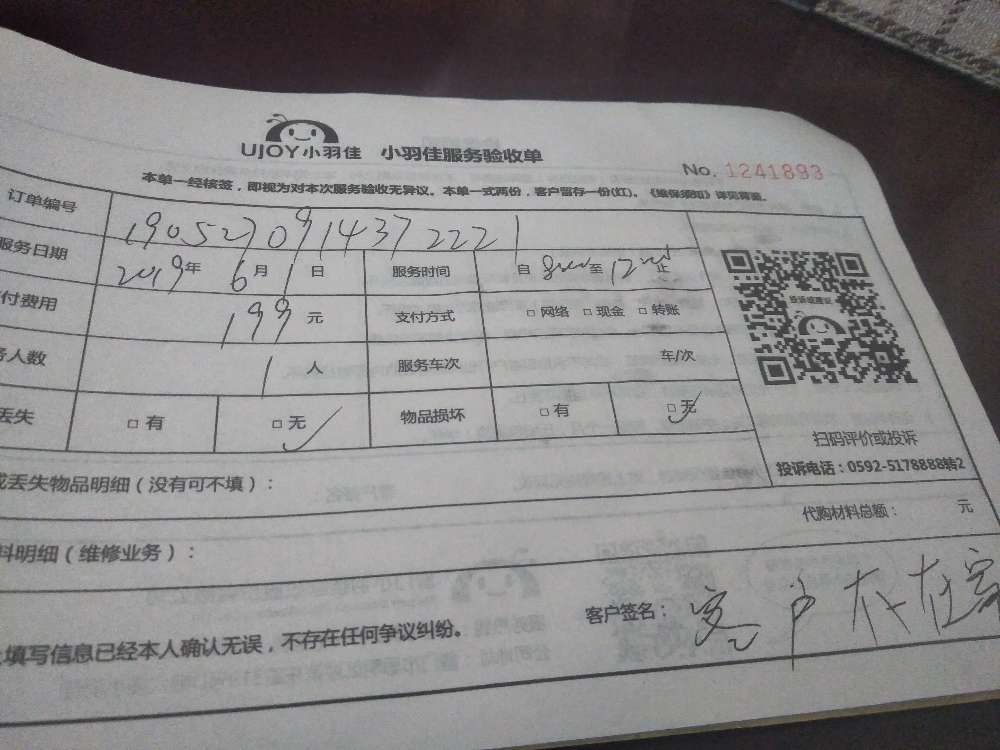 UJOY小羽佳 小羽佳服务验收单
No. 1241893
本单一经核签，即视为对本次服务验收无异议。本单一式两份，客户留存一份(红)。《维保须知》详见背面。
订单编号 190527091437 2221
服务日期 2019年 6月 1日 服务时间 自 至 12 止
付费用 199元 支付方式 □ 网络 □ 现金 □ 转账
务人数 1人 服务车次 车/次
丢失 □ 有 □ 无 ✓ 物品损坏 □ 有 □ 无 ✓
投诉或建议
扫码评价或投诉
投诉电话：0592-5178888转2
或丢失物品明细（没有可不填）：
代购材料总额： 元
料明细（维修业务）：
填写信息已经本人确认无误，不存在任何争议纠纷。
客户签名： 客户不在家